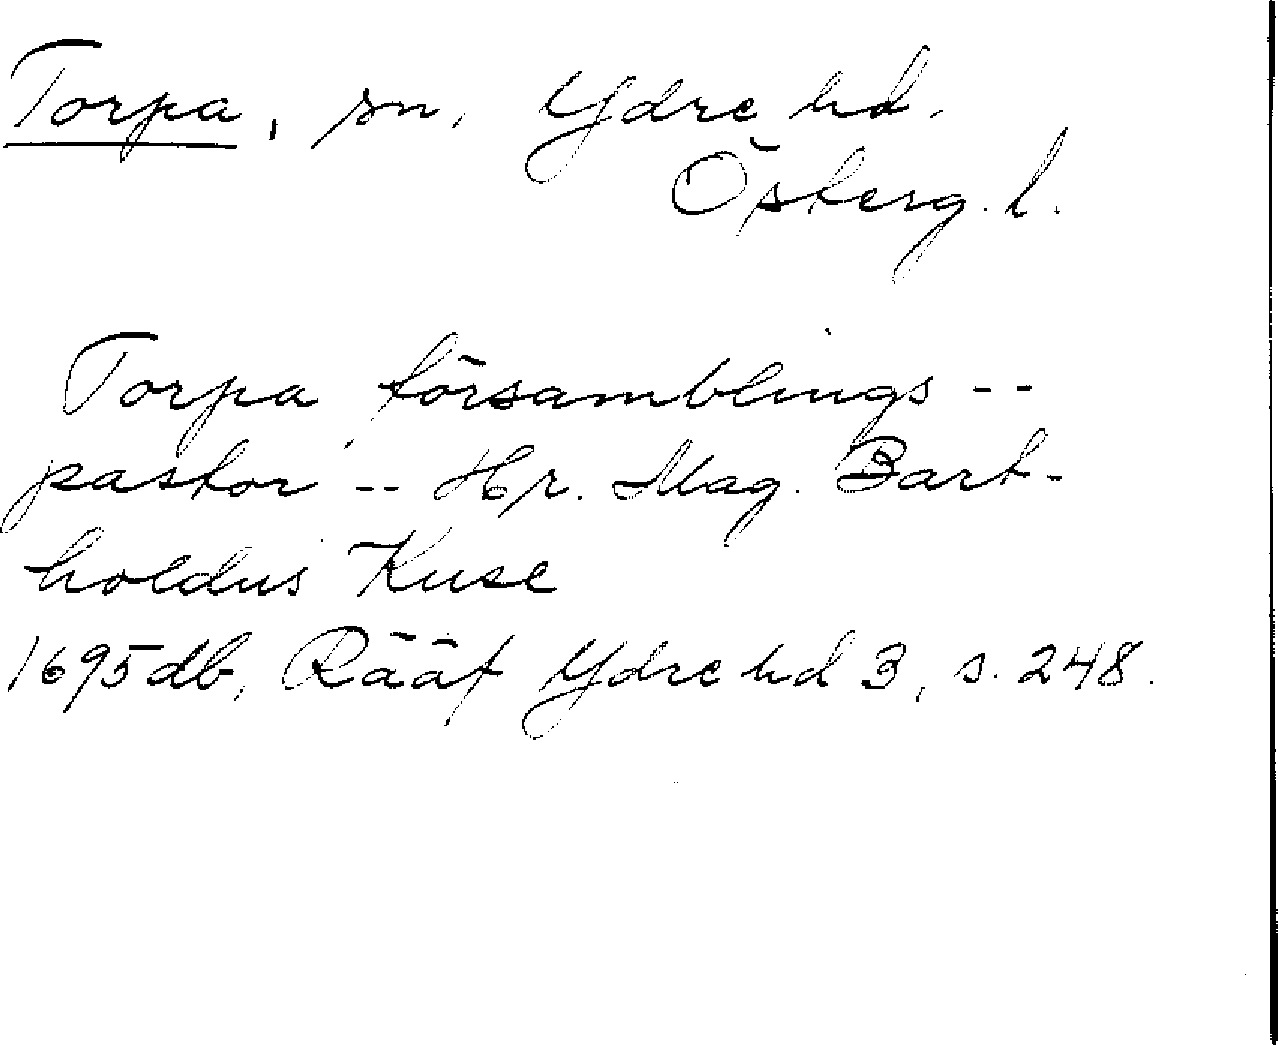 Torpa, sn, Ydre hd.
Österg. l.
Torpa församblings --
pastor -- Hr. Mag. Bart-
holdus Kuse
1695 db, Rääf Ydre hd 3, s. 248.